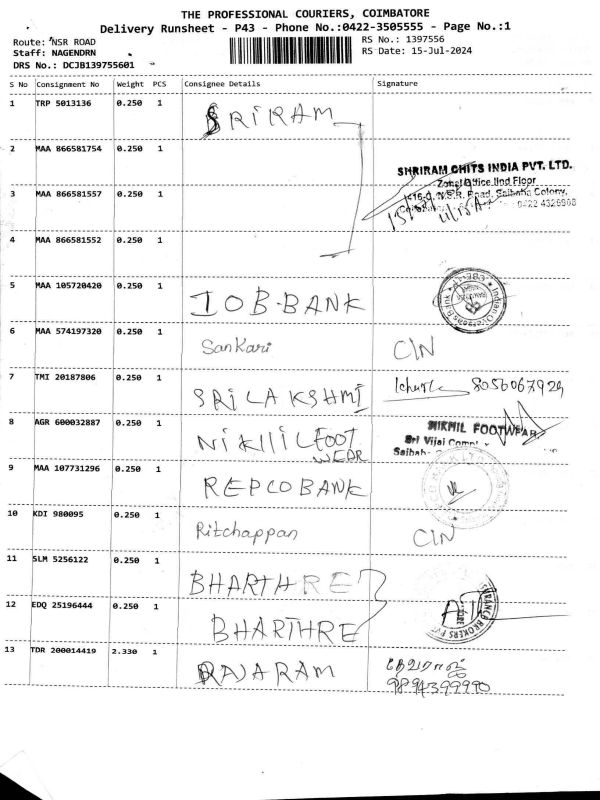 THE PROFESSIONAL COURIERS, COIMBATORE
Delivery Runsheet - P43 - Phone No.:0422-3505555 - Page No.:1
Route: NSR ROAD
RS No.: 1397556
Staff: NAGENDRN
RS Date: 15-Jul-2024
DRS No.: DCJB139755601
S No Consignment No Weight PCS Consignee Details Signature
1 TRP 5013136 0.250 1 SRIRAM
2 MAA 866581754 0.250 1
SHRIRAM CHITS INDIA PVT. LTD.
Zonal Office IInd Floor
3 MAA 866581557 0.250 1
N.S.R. Road, Saibaba Colony,
0422 4326908
4 MAA 866581552 0.250 1
5 MAA 105720420 0.250 1 IOB-BANK Indian Overseas Bank
6 MAA 574197320 0.250 1 Sankari CIN
7 TMI 20187806 0.250 1 SRI LAKSHMI 8056067929
8 AGR 600032887 0.250 1 NIKIIIL FOOT WEAR
NIKHIL FOOTWEAR
Sri Vijai
9 MAA 107731296 0.250 1 REPCO BANK
10 KDI 980095 0.250 1 Ritchappan CIN
11 SLM 5256122 0.250 1 BHARTHRE
12 EDQ 25196444 0.250 1 BHARTHRE
BROKERS
13 TDR 200014419 2.330 1 RAJARAM
9894399990